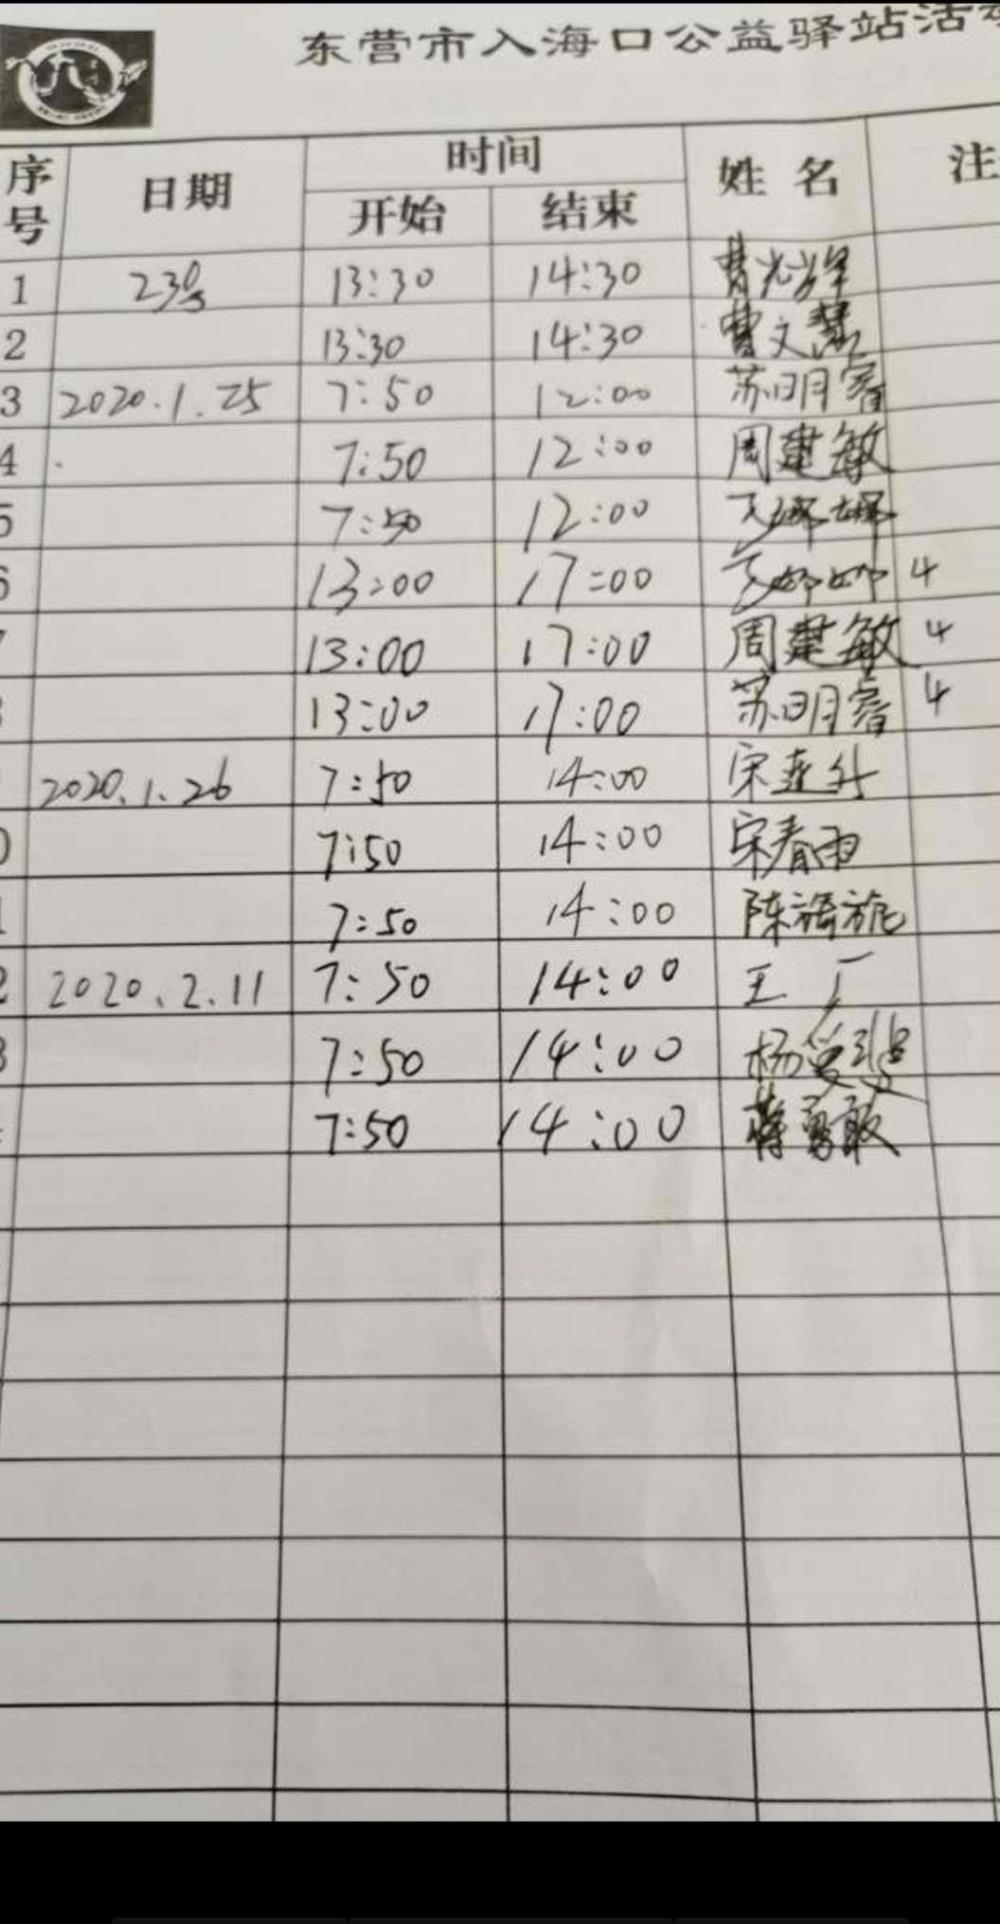 东营市入海口公益驿站活
序号 日期 时间 姓名 注
开始 结束
1 23号 13:30 14:30 曹光辉
2 13:30 14:30 曹文慧
3 2020.1.25 7:50 12:00 苏明睿
4 7:50 12:00 周建敏
5 7:50 12:00
6 13:00 17:00 4
13:00 17:00 周建敏 4
13:00 17:00 苏明睿 4
2020.1.26 7:50 14:00 宋延升
0 7:50 14:00 宋春雨
1 7:50 14:00 陈语旎
2 2020.2.11 7:50 14:00 王广
3 7:50 14:00 杨爱
7:50 14:00 蒋勇敢